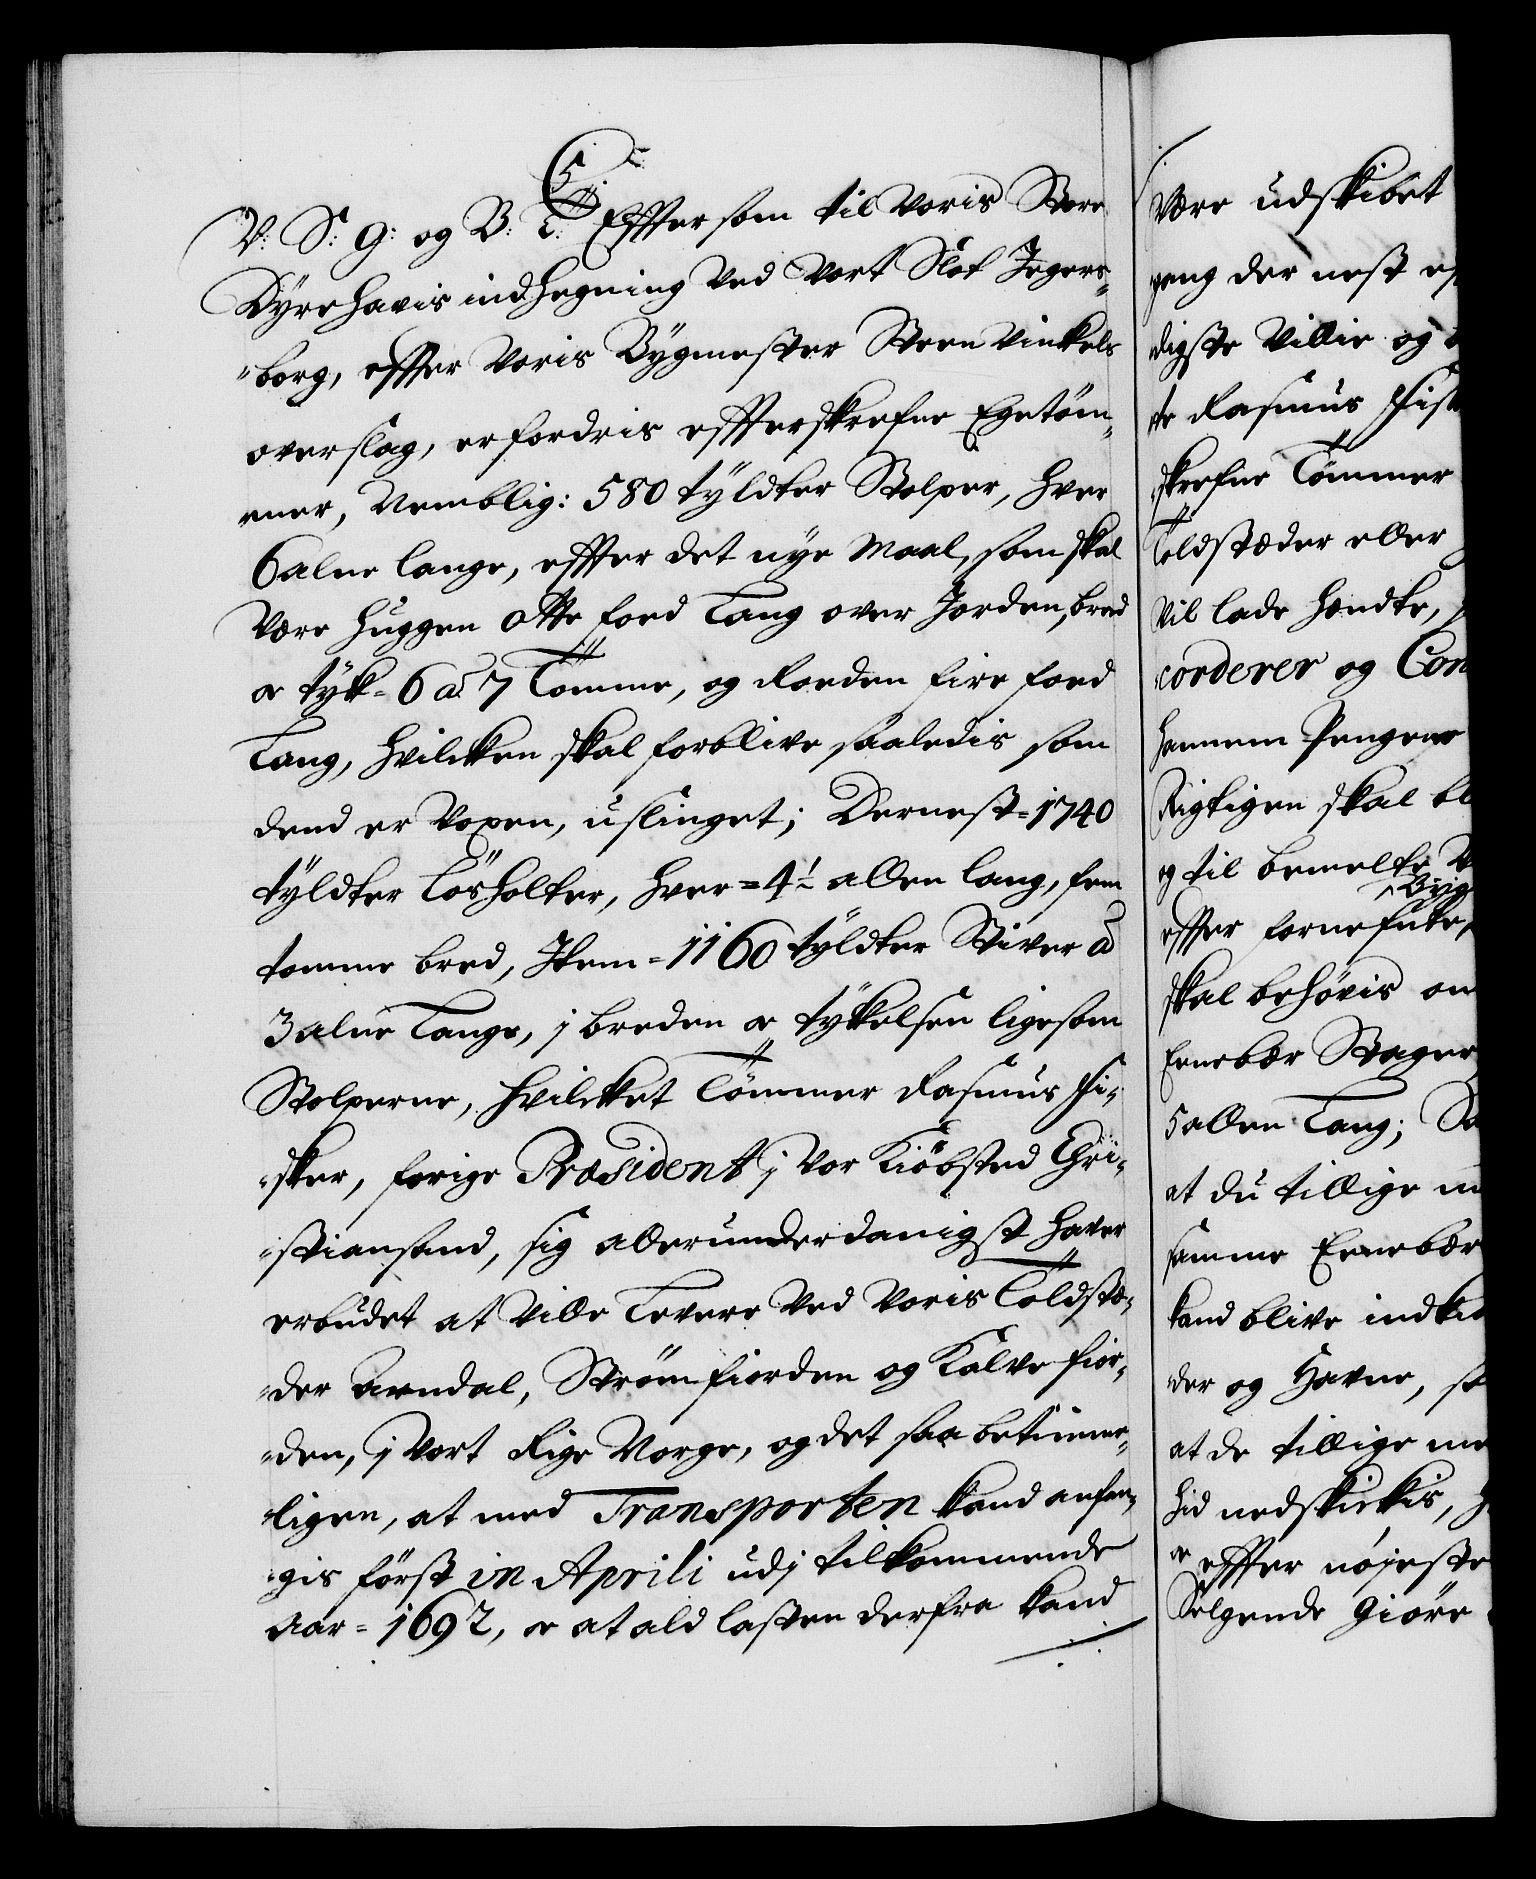 C5.
V: S: G: og B: T: Effter som til Voris Store
Dyrehavis indhegning Ved Vort Slot Jegers-
borg, effter Voris Bygmester Steen Vinkels
overslag, erfordris effterskrefne Egetöm-
mer, Nemblig: 580 tyldter Stolper, hver
6 alne lange, effter det nye Maal, som skal
Være huggen otte foed Lang over Jorden, bred
og tyk = 6 a 7 Tomme, og Roeden fire foed
Lang, hvilcken skal forblive saaledis som
dend er Voxen, uslinget; Dernest = 1740
tyldter Lösholter, hver = 4½ allen lang, fem
tomme bred, Item = 1160 tyldter Stiver à
3 alne Lange, i breden og tykelsen ligesom
Stolperne, hvilcket Tömmer Rasmus Fi-
sker, forige Præsident i Vor Kiöbsted Chri-
stiansand, sig allerunderdanigst haver
erbudet at Ville Levere Ved Voris Toldstæ-
der Arndal, Strömfiorden og Kalvefior-
den, i Vort Rige Norge, og det saa betimme-
ligen, at med Transporten kand anfan-
gis först in Aprili udi tilkommende
Aar = 1692, og at ald lasten derfra kand
Være udskibet
gang der nest ef
digste Villie og
te Rasmus Fisk
skrefne Tömmer
Toldstæder eller
Vil lade hendte,
corderer og Con
hannem Pengene
Rigtigen skal bl
og til bemelte V
effter fornefnte,
skal behövis
Eenebær Stager
5 allen Lang; Sa
at du tillige
samme Eenebær
kand blive indki
der og Havne, s
at de tillige me
hid nedskickis,
og effter nöjeste
Selgende Giöre